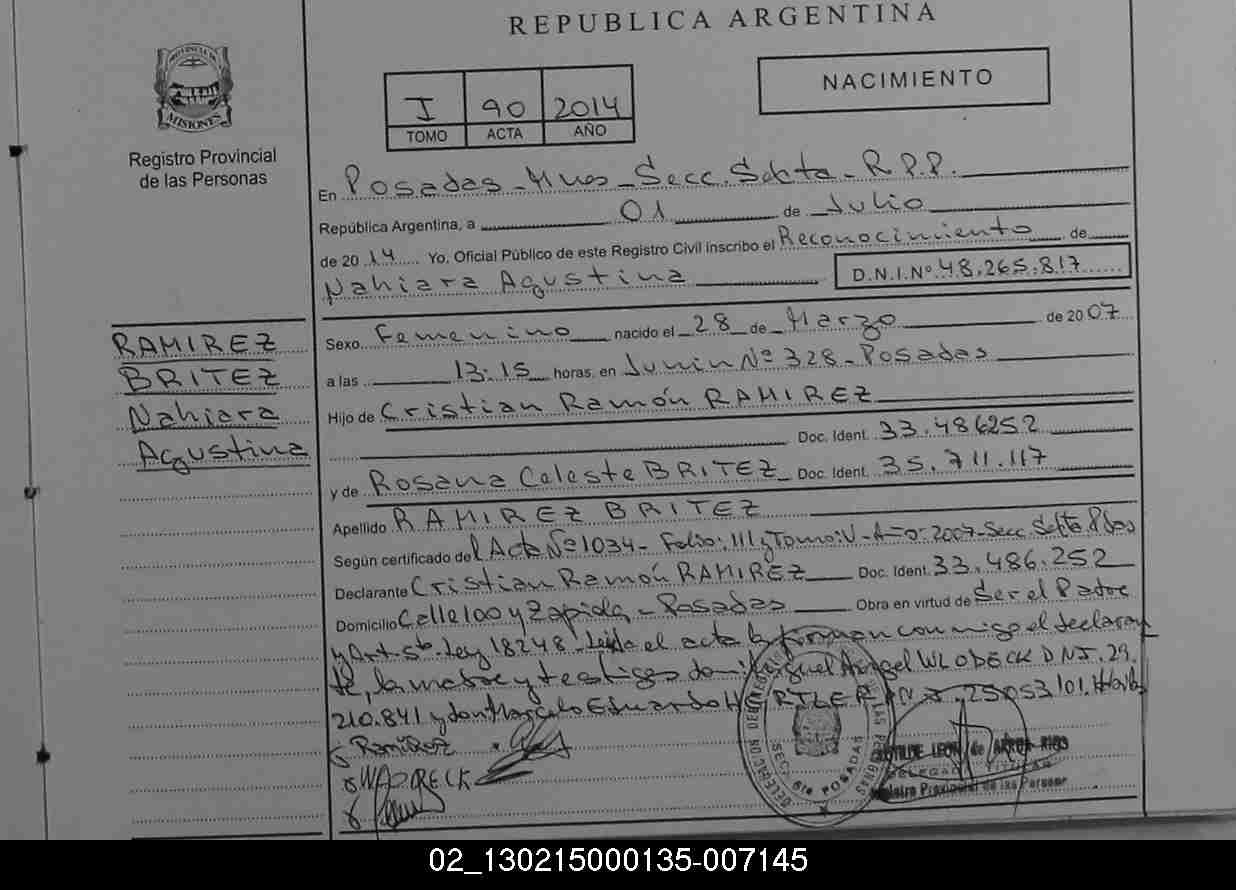 REPUBLICA ARGENTINA
PROVINCIA DE
MISIONES
Registro Provincial
de las Personas
I 90 2014
TOMO ACTA AÑO
NACIMIENTO
En Posadas - Mnes - Secc. Sexta - R.P.P.
República Argentina, a 01 de Julio
de 2014 Yo, Oficial Público de este Registro Civil inscribo el Reconocimiento de
Nahiara Agustina D.N.I.Nº 48.265.817
RAMIREZ
BRITEZ
Nahiara
Agustina
Sexo Femenino nacido el 28 de Marzo de 2007
a las 13:15 horas, en Junin Nº 328 - Posadas
Hijo de Cristian Ramón RAMIREZ
Doc. Ident. 33.486252
y de Rosana Celeste BRITEZ Doc. Ident. 35.711.117
Apellido RAMIREZ BRITEZ
Según certificado del Acta Nº 1034 - Folio: 111 y Tomo: V - Año: 2007 - Secc. Sexta Pdas
Declarante Cristian Ramón RAMIREZ Doc. Ident. 33.486.252
Domicilio Calle 100 y Zapiola - Posadas Obra en virtud de Ser el Padre
y Art. 5to. Ley 18248 - leida el acta la firman conmigo el declaran
te, la madre y testigos don Miguel Angel WLODECK DNI. 29.
210.841 y don Marcelo Eduardo 25053101.
Ramirez
WLODECK
DELEGACION SECC. 6ta POSADAS
LEON de
DELEGADA TITULAR
Registro Provincial de las Personas
02_130215000135-007145